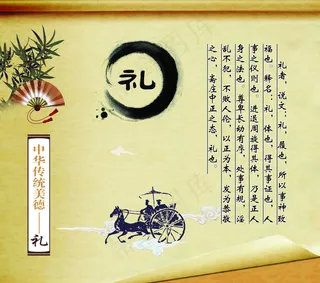 礼者，说文：礼，履也，所以事神致
福也。释名：礼，体也，得其事证也，人
事之仪则也。进退周旋得其体，乃是正人
身之法也。尊卑长幼有序，处事有规，淫
乱不犯，不败人伦，以正为本，发为恭敬
之心，斋庄中正之态，礼也。
礼
中华传统美德——礼